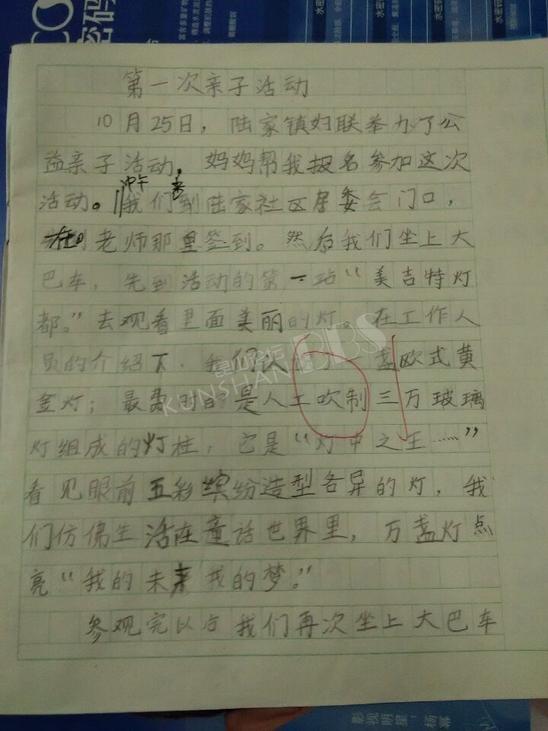 密码
第一次亲子活动
10月25日,陆家镇妇联举办了公
益亲子活动,妈妈帮我报名参加这次
中午 来
活动。我们到陆家社区居委会门口,
老师那里签到。然后我们坐上大
巴车,先到活动的第一站“美吉特灯
都。”去观看里面美丽的灯。在工作人
员的介绍下,我们认 了一盏欧式黄
金灯;最 的是人工吹制三万玻璃
灯组成的灯柱,它是“灯中之王……”
看见眼前五彩缤纷造型各异的灯,我
们仿佛生活在童话世界里,万盏灯点
亮“我的未来我的梦。”
参观完以后我们再次坐上大巴车
KUNSHAN BBS
影视明星:杨幂